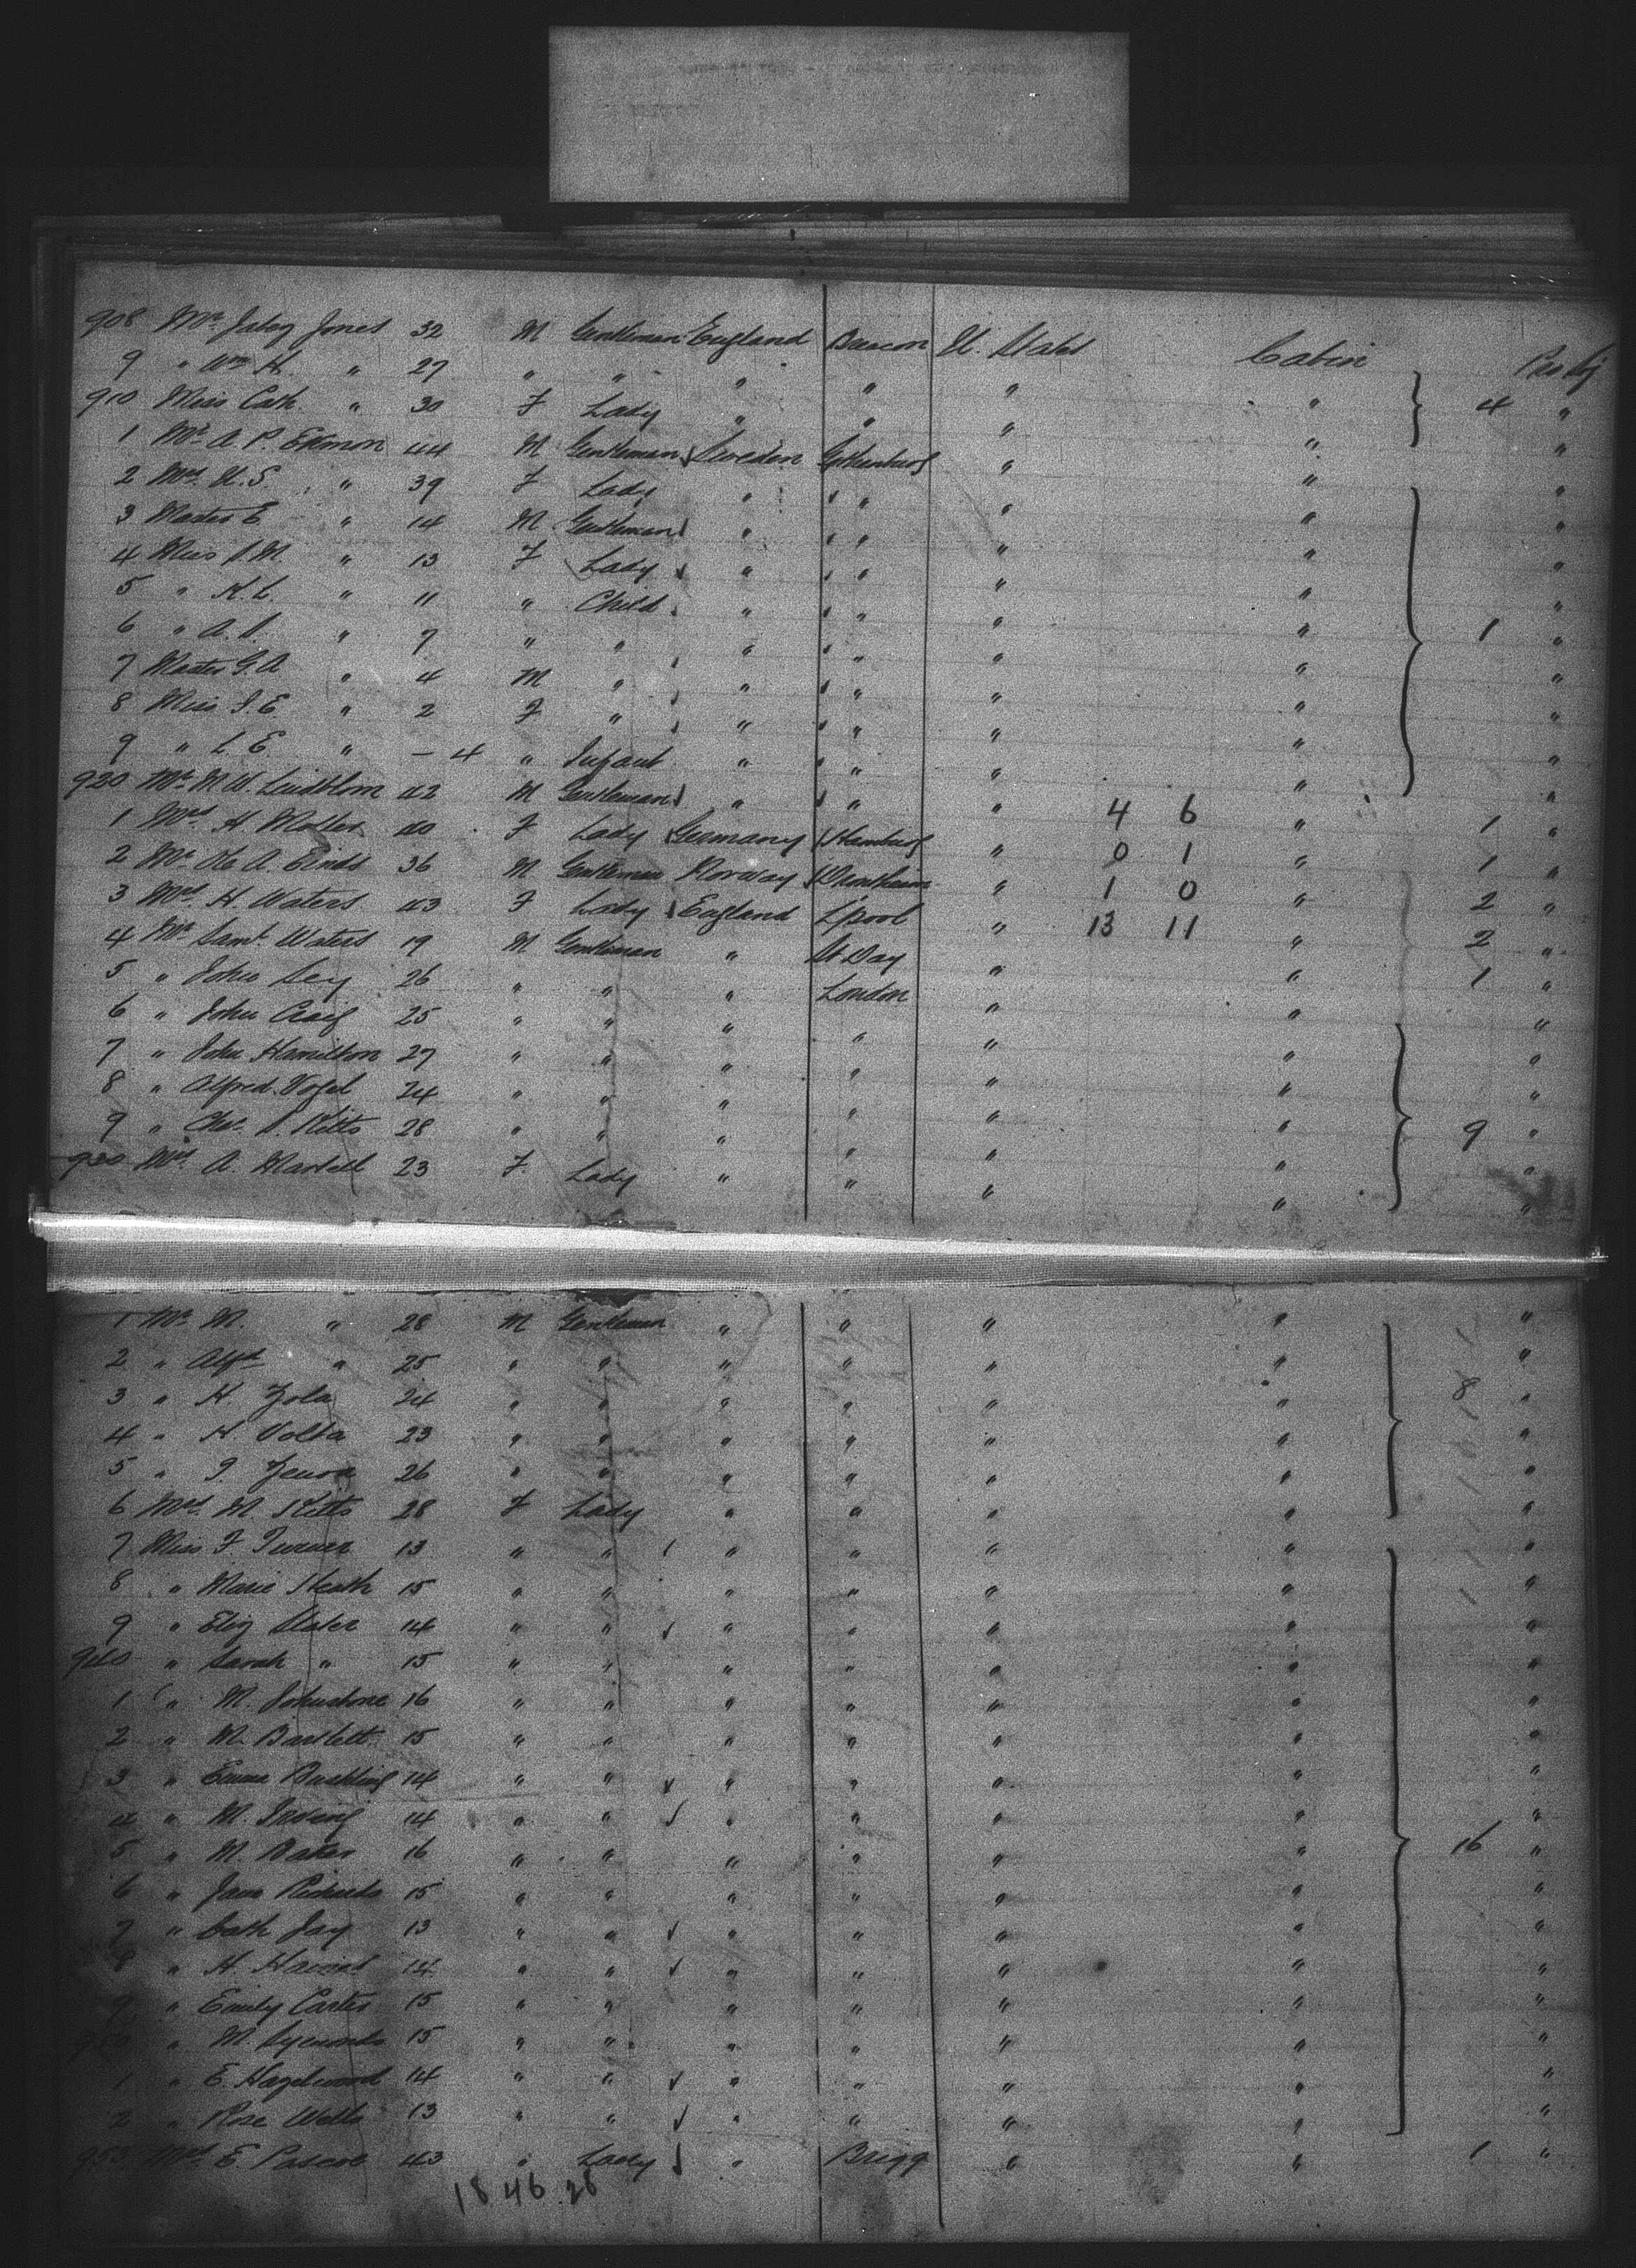 908 Mr. Jabez Jones 32 M Gentleman England Beacon U. States Cabin
9 " Wm H. " 27 " " " " " "
910 Miss Cath. " 30 F Lady " " " " 4 "
1 Mr. A. P. Ekmon 44 M Gentleman Sweden Gothenburg " " "
2 Mrs. U. S. " 39 F Lady " " " " "
3 Master E " 14 M Gentleman " " " " "
4 Miss S. M. " 13 F Lady " " " " "
5 " K. L. " 11 " Child " " " " "
6 " A. S. " 7 " " " " " " 1 "
7 Master G. A. " 4 M " " " " " "
8 Miss I. E. " 2 F " " " " " "
9 " L E. " - 4 " Infant " " " " "
920 Mr. M. W. Lindblom 42 M Gentleman " " " 4 6 " 1 "
1 Mrs. H Moller 40 F Lady Germany Hamburg " 0 1 " 1 "
2 Mr. A. 36 M Gentleman Norway " 1 0 " 2 "
3 Mrs. H. Waters 43 F Lady England L'pool " 13 11 " 2 "
4 Mr. Saml. Waters 19 M Gentleman " St Day " " "
5 " John Sey 26 " " " London " " 1 "
6 " John Craig 25 " " " " " " "
7 " John Hamilton 27 " " " " " " "
8 " Alfred Vogel 24 " " " " " " "
9 " Chas. S. Kitts 28 " " " " " " 9 "
930 Mrs. A. Martell 23 F Lady " " " " "
1 Mr. M. " 28 M Gentleman " " " " "
2 " Alfd " 25 " " " " " " "
3 " H. Zola 24 " " " " " " 8 "
4 " H. Volta 23 " " " " " " "
5 " 26 " " " " " " "
6 Mrs. M. Kitts 28 F Lady " " " " "
7 Miss F Turner 13 " " " " " " "
8 " Marie Heath 15 " " " " " " "
9 " Eliz Slater 14 " " " " " " "
940 " Sarah " 15 " " " " " " "
1 " M. Johnstone 16 " " " " " " "
2 " M. Bartlett 15 " " " " " " "
3 " Emma 14 " " " " " " "
4 " M. Irving 14 " " " " " " "
5 " M Baker 16 " " " " " " 16 "
6 " Jane Richards 15 " " " " " " "
7 " Cath Jay 13 " " " " " " "
8 " H 14 " " " " " " "
9 " Emily Carter 15 " " " " " " "
950 " M. 15 " " " " " " "
1 " E. Hazelwood 14 " " " " " " "
2 " Rose Wells 13 " " " " " " "
953 Mrs. E. Pascoe 43 " Lady " Brigg " " 1 "
18 46 28